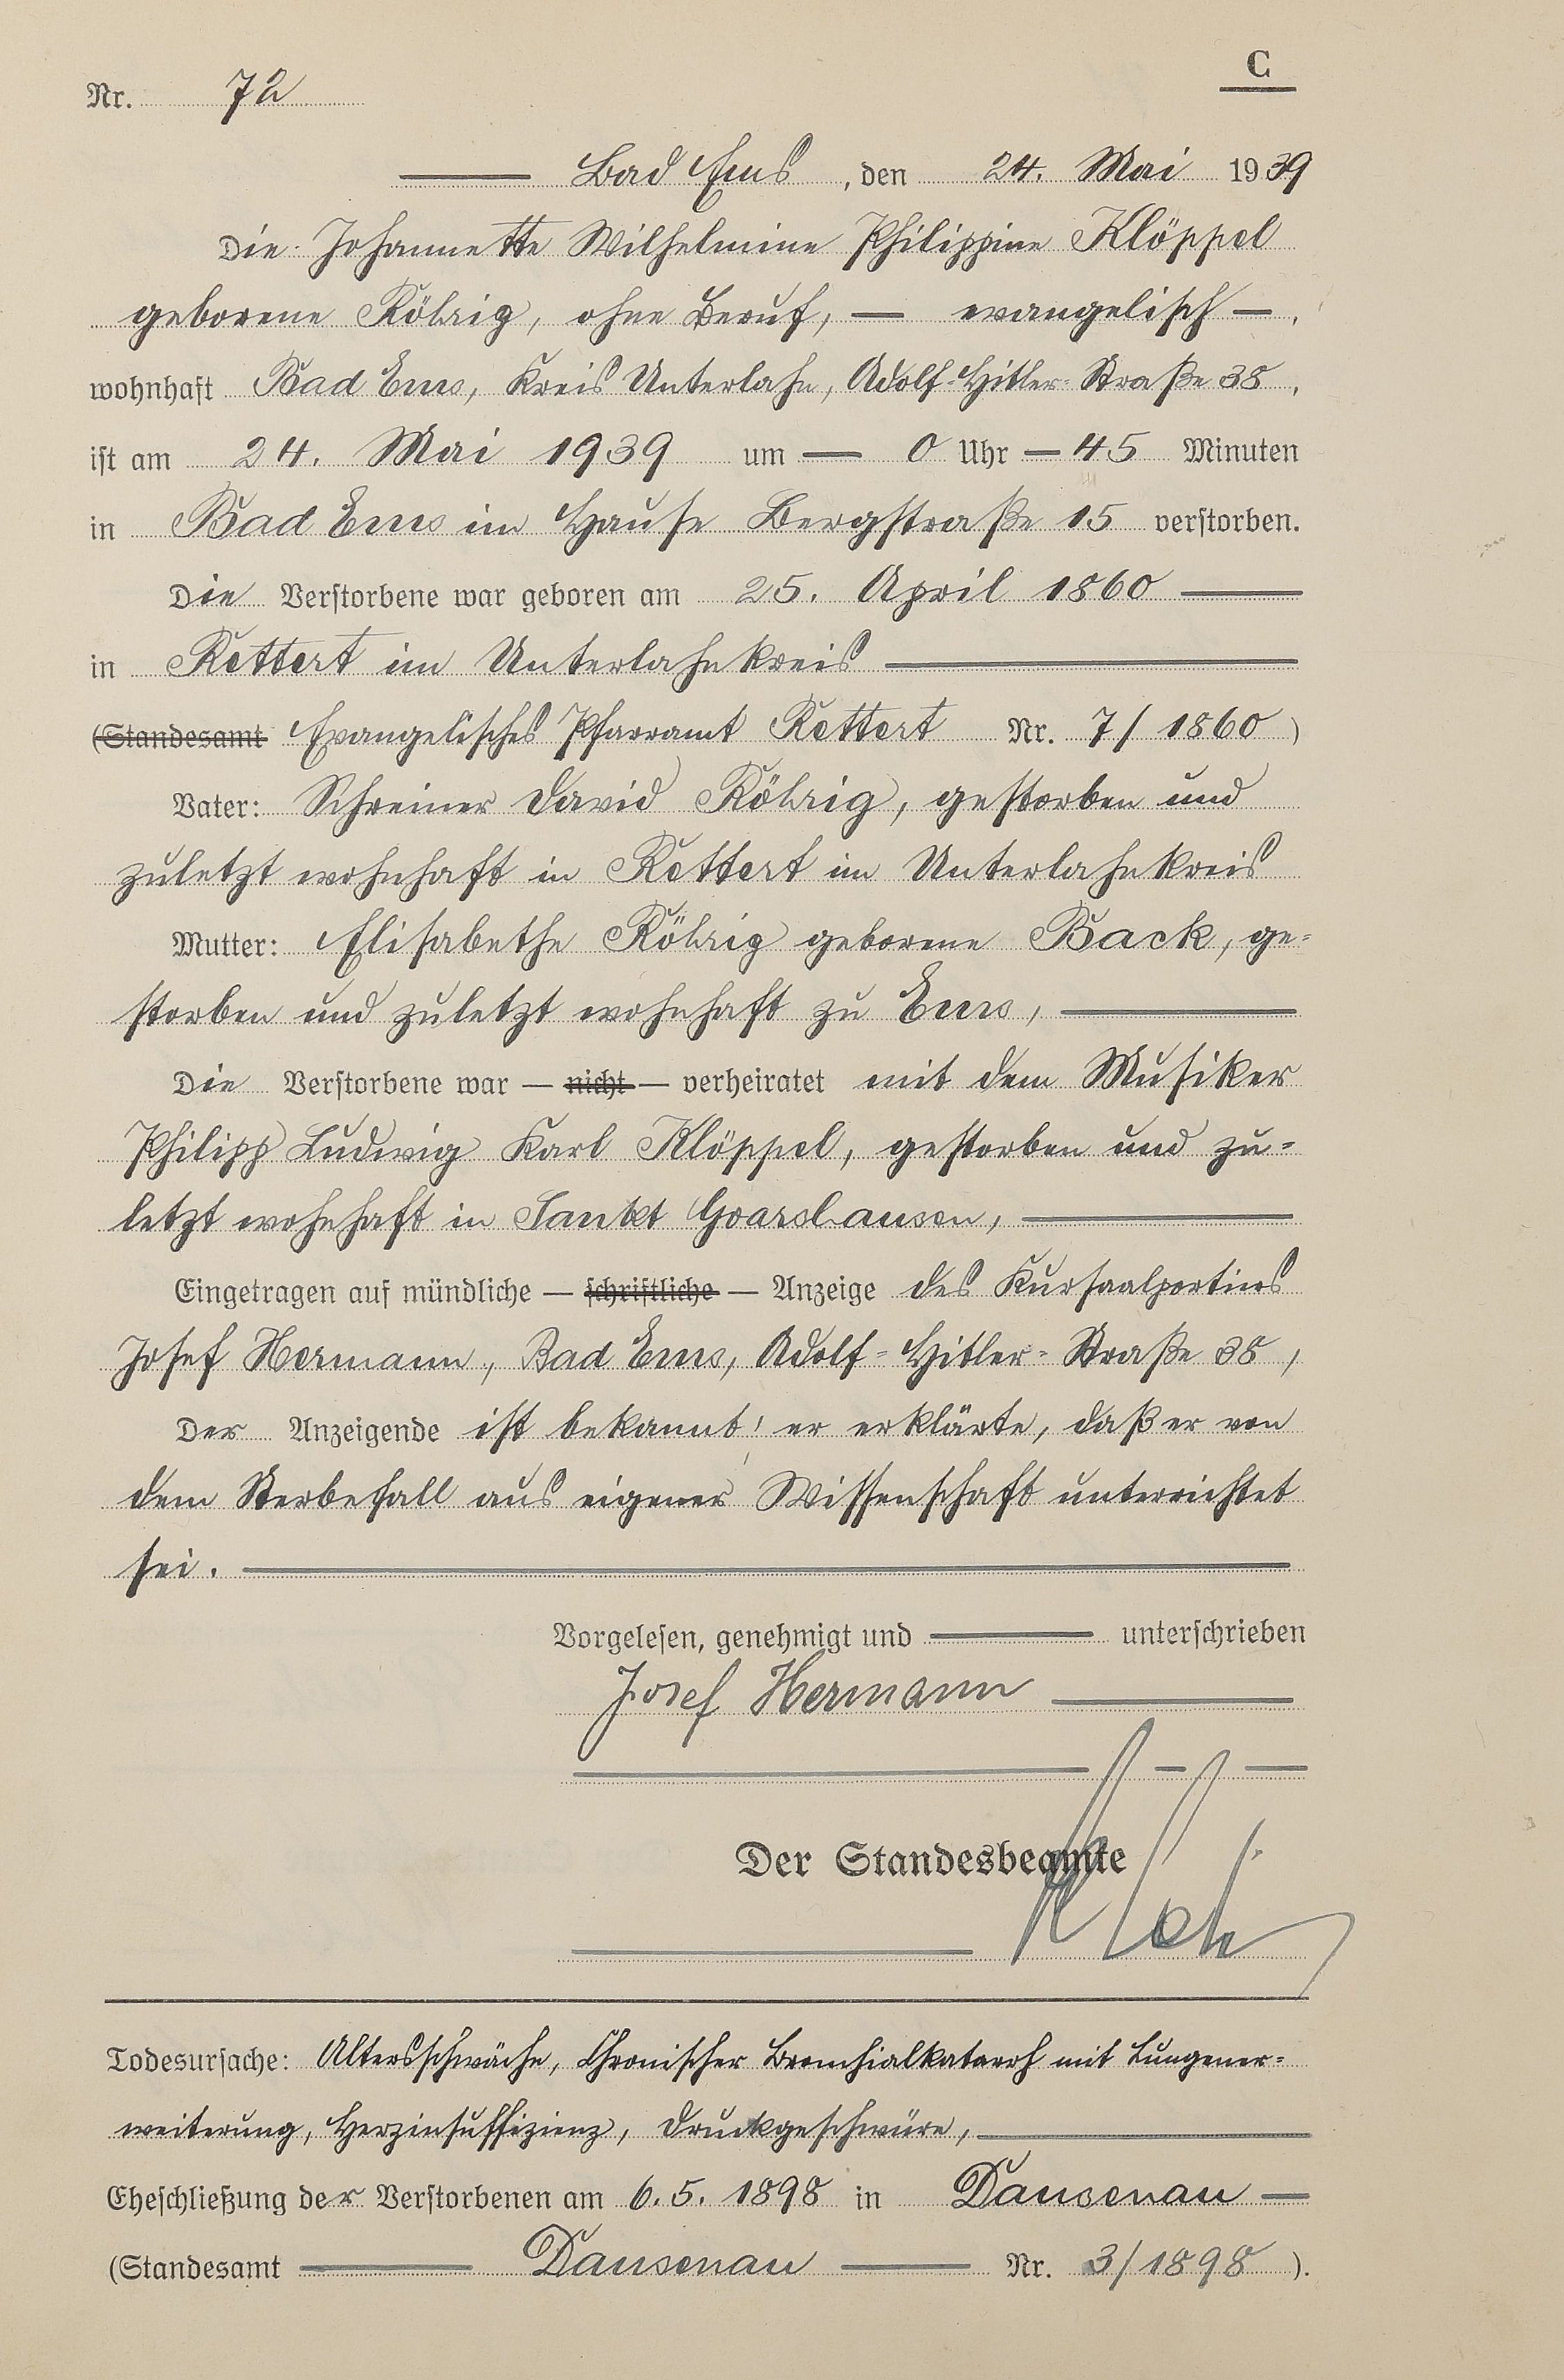 C
Nr. 72
Bad Ems, den 24. Mai 1939
Die Johannette Wilhelmine Philippine Klöppel
geborene Röhrig, ohne Beruf, — evangelisch —,
wohnhaft Bad Ems, Kreis Unterlahn, Adolf-Hitler-Straße 38,
ist am 24. Mai 1939 um — 0 Uhr — 45 Minuten
in Bad Ems im Hause Bergstraße 15 verstorben.
Die Verstorbene war geboren am 25. April 1860 —
in Rettert im Unterlahnkreis —
(Standesamt Evangelisches Pfarramt Rettert Nr. 7/1860)
Vater: Schreiner David Röhrig, gestorben und
zuletzt wohnhaft in Rettert im Unterlahnkreis
Mutter: Elisabethe Röhrig geborene Back, ge=
storben und zuletzt wohnhaft zu Ems, —
Die Verstorbene war — nicht — verheiratet mit dem Musiker
Philipp Ludwig Karl Klöppel, gestorben und zu=
letzt wohnhaft in Sankt Goarshausen, —
Eingetragen auf mündliche — schriftliche — Anzeige des Kursaalportiers
Josef Hermann, Bad Ems, Adolf=Hitler=Straße 38,
Der Anzeigende ist bekannt; er erklärte, daß er von
dem Sterbefall aus eigener Wissenschaft unterrichtet
sei. —
Vorgelesen, genehmigt und — unterschrieben
Josef Hermann —
Der Standesbeamte
Todesursache: Altersschwäche, Chronischer Bronchialkatarrh mit Lungener=
weiterung, Herzinsuffizienz, Druckgeschwüre, —
Eheschließung der Verstorbenen am 6.5.1898 in Dausenau —
(Standesamt — Dausenau — Nr. 3/1898).